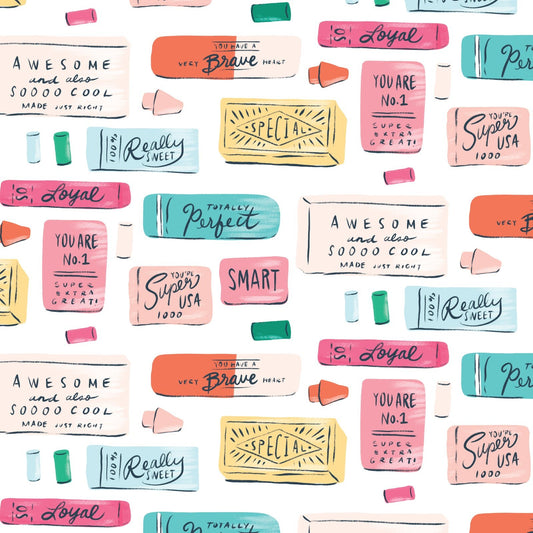 SO Loyal
AWESOME
and also
SOOOO COOL
MADE JUST RIGHT
YOU HAVE A
VERY Brave HEART
TOTALLY
Perfect
YOU ARE
No.1
SUPER
EXTRA
GREAT!
SPECIAL
YOU'RE
Super
USA
1000
100% Really
SWEET
SO Loyal
TOTALLY
Perfect
AWESOME
and also
SOOOO COOL
MADE JUST RIGHT
VERY B
YOU ARE
No.1
SUPER
EXTRA
GREAT!
YOU'RE
Super
USA
1000
SMART
100% Really
SWEET
SO Loyal
AWESOME
and also
SOOOO COOL
MADE JUST RIGHT
YOU HAVE A
VERY Brave HEART
YOU ARE
No.1
SUPER
EXTRA
GREAT!
SPECIAL
YOU'RE
Super
USA
1000
100% Really
SWEET
SO Loyal
TOTALLY
Perfect